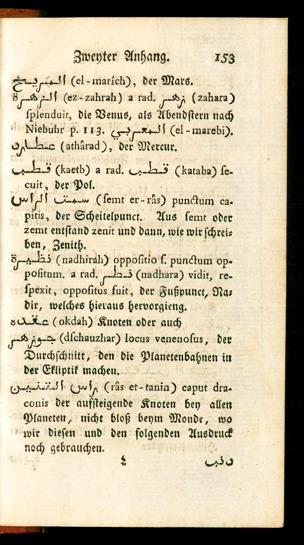 Zweyter Anhang. 153
المريخ (el-marîch), der Mars.
الزهرة (ez-zahrah) a rad. زهر (zahara)
splenduit, die Venus, als Abendstern nach
Niebuhr p. 113. المغربي (el-marebi).
عطارد (athârad), der Mercur.
قطب (kaetb) a rad. قطب (kataba) se-
cuit, der Pol.
سمت الراس (semt er-râs) punctum ca-
pitis, der Scheitelpunct. Aus semt oder
zemt entstand zenit und dann, wie wir schrei-
ben, Zenith.
نظيرة (nadhirah) oppositio s. punctum op-
positum. a rad. نظر (nadhara) vidit, re-
spexit, oppositus fuit, der Fußpunct, Na-
dir, welches hieraus hervorgieng.
عقده (okdah) Knoten oder auch
جوزهر (dschauzhar) locus venenosus, der
Durchschnitt, den die Planetenbahnen in
der Ekliptik machen.
راس التنين (râs et-tanin) caput dra-
conis der aufsteigende Knoten bey allen
Planeten, nicht bloß beym Monde, wo
wir diesen und den folgenden Ausdruck
noch gebrauchen.
ذنب